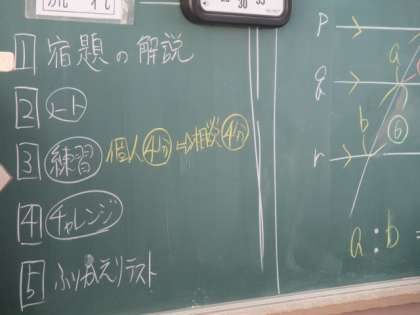 流れ
1 宿題の解説
2 ノート
3 練習 個人4分⇨相談4分
4 チャレンジ
5 ふりかえりテスト
P
q
a
r
b
6
a:b=